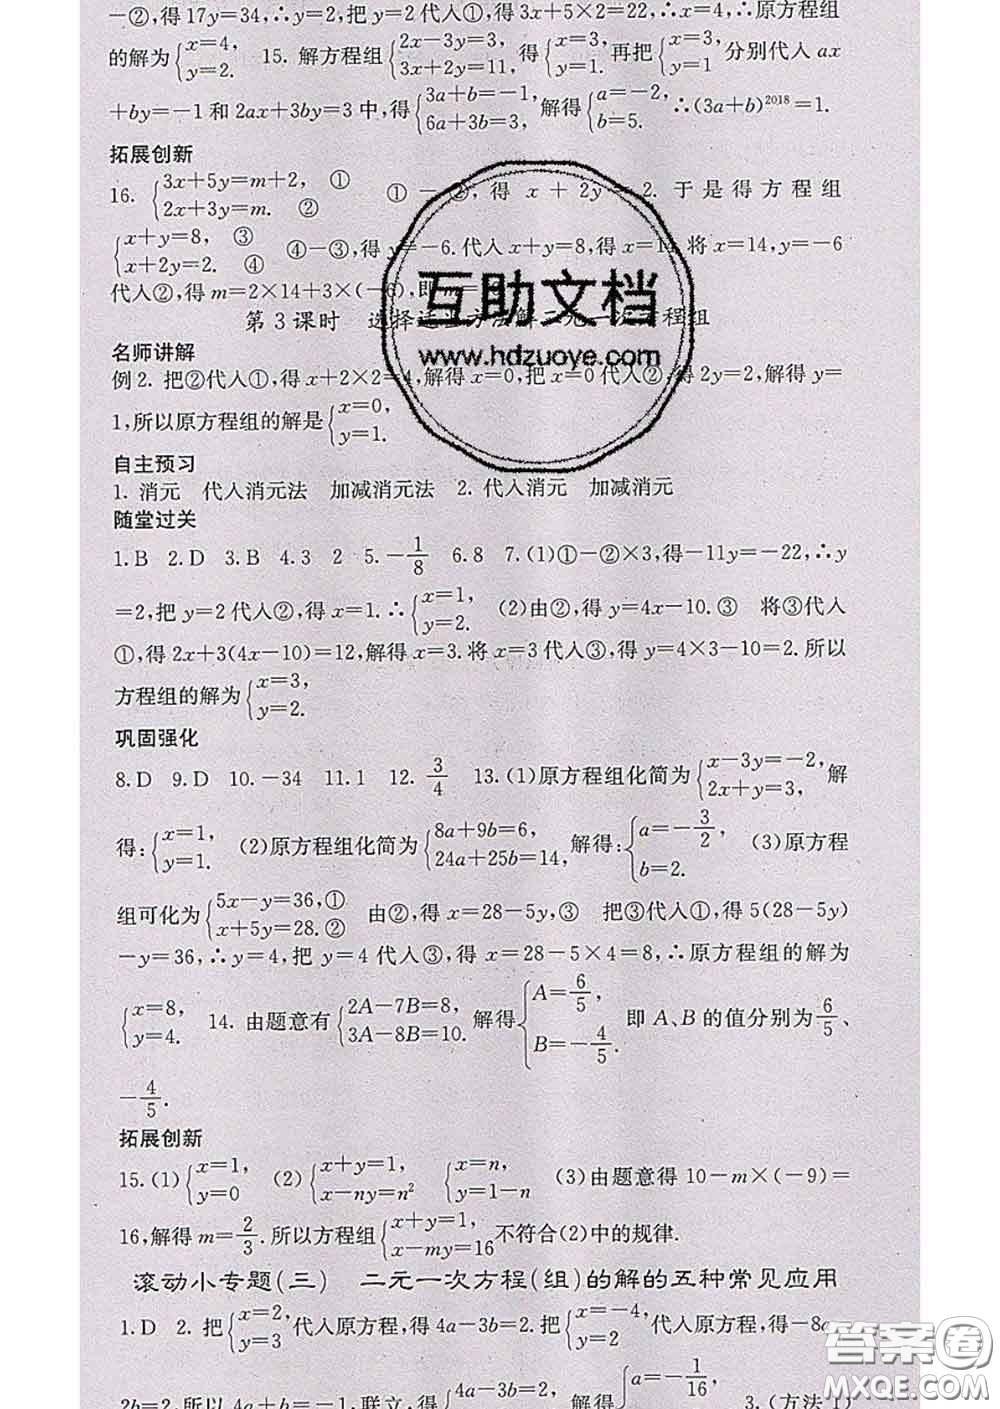 −②,得17y=34,∴y=2,把y=2代入①,得3x+5×2=22,∴x=4,∴原方程组
的解为{x=4, y=2. 15. 解方程组{2x−3y=3, 3x+2y=11, 得{x=3, y=1. 再把{x=3, y=1 分别代入ax
+by=−1和2ax+3by=3中,得{3a+b=−1, 6a+3b=3, 解得{a=−2, b=5. ∴(3a+b)²⁰¹⁸=1.
拓展创新
16. {3x+5y=m+2, ① 2x+3y=m. ② ①−②,得x+2y=2. 于是得方程组
{x+y=8, ③ x+2y=2. ④ ④−③,得y=−6.代入x+y=8,得x=14.将x=14,y=−6
代入②,得m=2×14+3×(−6),即m=
第3课时 选择适当方法解二元一次方程组
名师讲解
例2. 把②代入①,得x+2×2=4,解得x=0,把x=0代入②,得2y=2,解得y=
1,所以原方程组的解是{x=0, y=1.
自主预习
1. 消元 代入消元法 加减消元法 2. 代入消元 加减消元
随堂过关
1.B 2.D 3.B 4.3 2 5.−1/8 6.8 7.(1)①−②×3,得−11y=−22,∴y
=2,把y=2代入②,得x=1.∴{x=1, y=2. (2)由②,得y=4x−10.③ 将③代入
①,得2x+3(4x−10)=12,解得x=3.将x=3代入③,得y=4×3−10=2.所以
方程组的解为{x=3, y=2.
巩固强化
8.D 9.D 10.−34 11.1 12. 3/4 13.(1)原方程组化简为{x−3y=−2, 2x+y=3, 解
得:{x=1, y=1. (2)原方程组化简为{8a+9b=6, 24a+25b=14, 解得:{a=−3/2, b=2. (3)原方程
组可化为{5x−y=36,① x+5y=28.② 由②,得x=28−5y,③ 把③代入①,得5(28−5y)
−y=36,∴y=4,把y=4代入③,得x=28−5×4=8,∴原方程组的解为
{x=8, y=4. 14. 由题意有{2A−7B=8, 3A−8B=10. 解得{A=6/5, B=−4/5. 即A、B的值分别为6/5、
−4/5.
拓展创新
15.(1){x=1, y=0 (2){x+y=1, x−ny=n² {x=n, y=1−n (3)由题意得10−m×(−9)=
16,解得m=2/3.所以方程组{x+y=1, x−my=16 不符合(2)中的规律.
滚动小专题(三) 二元一次方程(组)的解的五种常见应用
1.D 2. 把{x=2, y=3 代入原方程,得4a−3b=2.把{x=−4, y=2 代入原方程,得−8a
2b=2.所以4a+b=−1.联立,得{4a−3b=2, 解得{a=−1/16, 3.(方法1)
互助文档
www.hdzuoye.com
答案圈
MXQE.COM